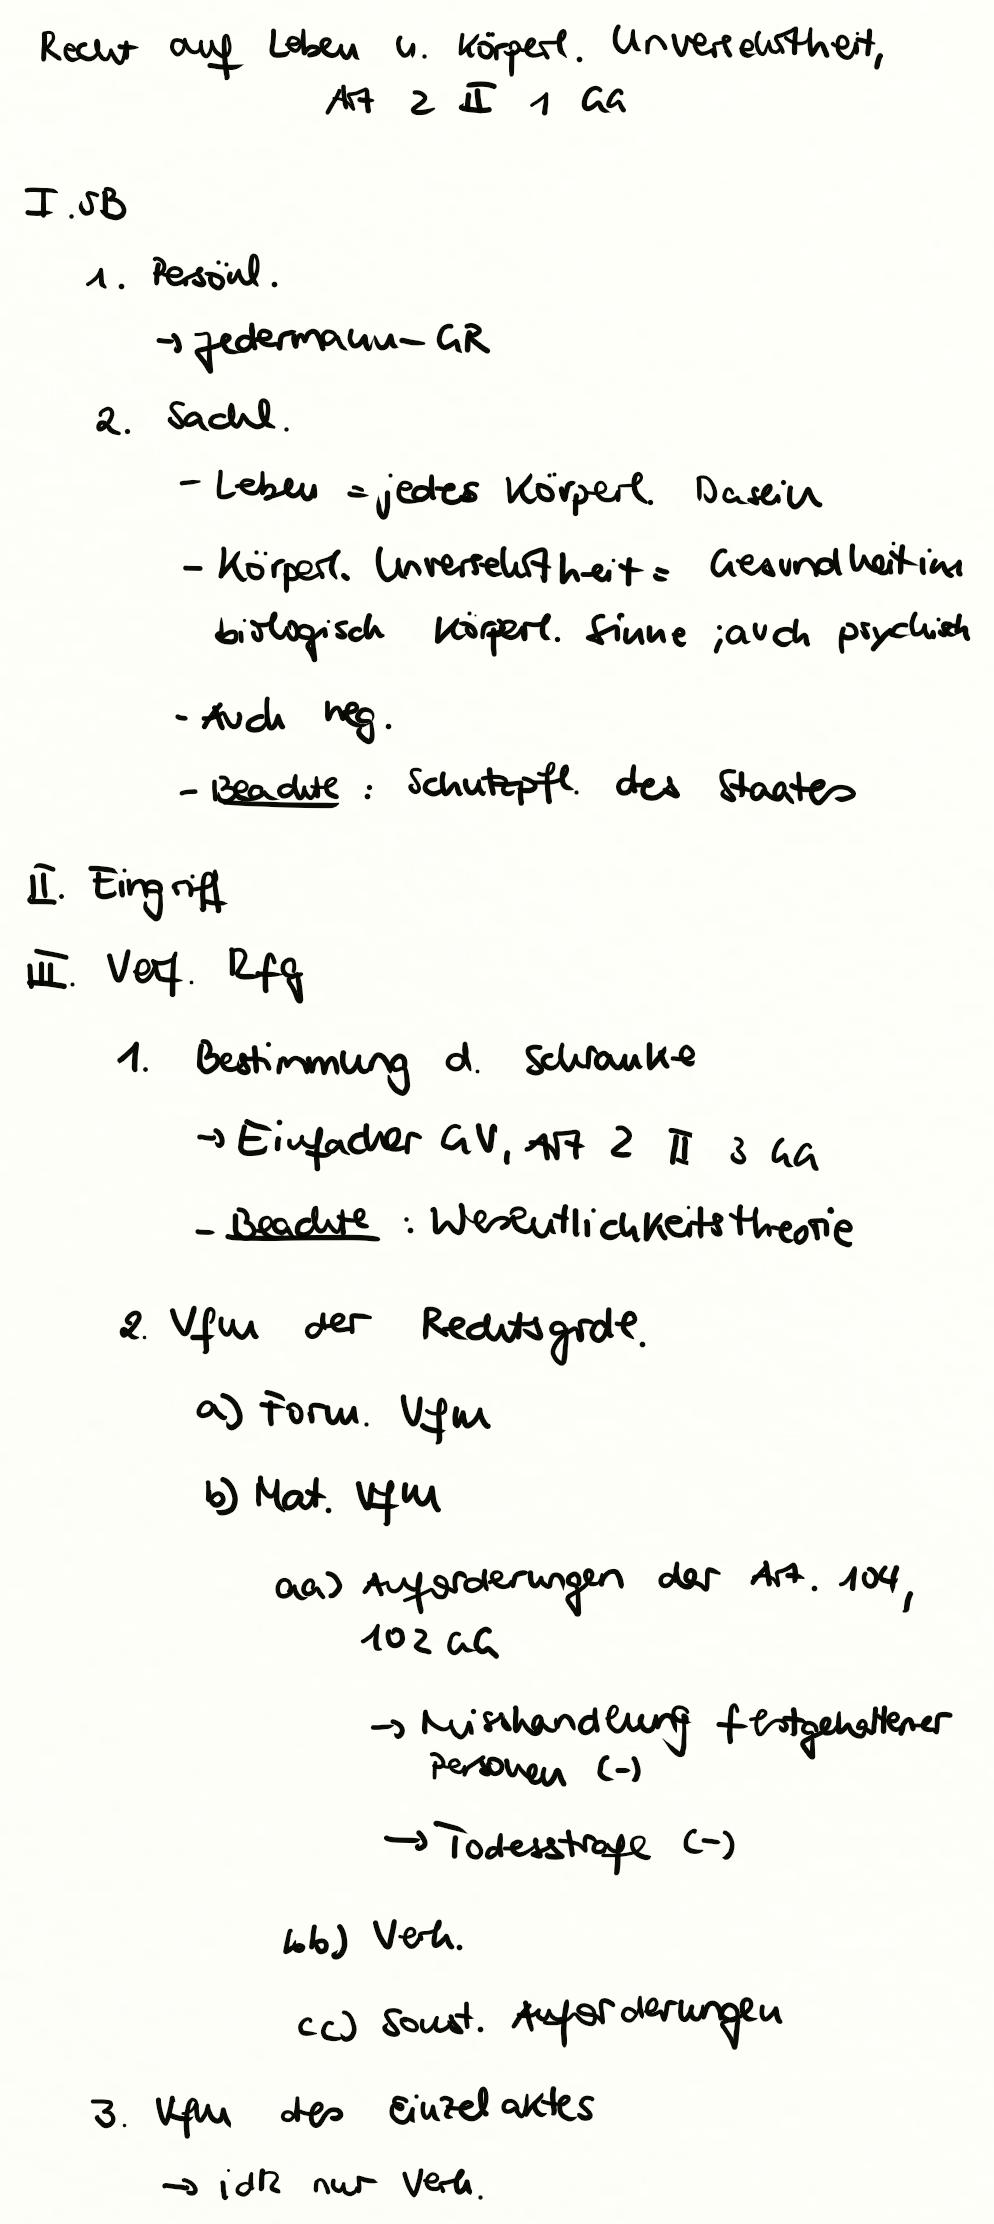 Recht auf Leben u. Körperl. Unversehrtheit,
Art 2 II 1 GG
I. SB
1. Persönl.
→ Jedermann-GR
2. Sachl.
- Leben = jedes Körperl. Dasein
- Körperl. Unversehrtheit = Gesundheit im
biologisch Körperl. Sinne ; auch psychisch
- Auch neg.
- Beachte : Schutzpfl. des Staates
II. Eingriff
III. Verf. Rfg
1. Bestimmung d. Schranke
→ Einfacher GV, Art 2 II 3 GG
- Beachte : Wesentlichkeitstheorie
2. Vfm der Rechtsgrdl.
a) Form. Vfm
b) Mat. Vfm
aa) Anforderungen der Art. 104,
102 GG
→ Misshandlung festgehaltener
Personen (-)
→ Todesstrafe (-)
bb) Verh.
cc) Sonst. Anforderungen
3. Vfm des Einzelaktes
→ idR nur Verh.